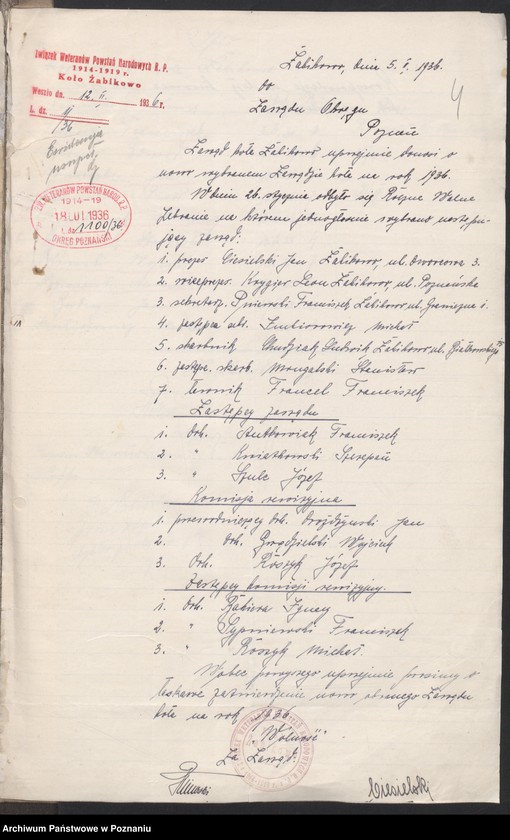 Związek Weteranów Powstań Narodowych R. P.
1914-1919 r.
Koło Żabikowo
Weszło dn. 12. II. 1936 r.
L. dz. 11
/36
Żabikowo, dnia 5. I. 1936.
4
Do
Zarządu Okręgu
Poznań
ZW. WETERANÓW POWSTAŃ NAROD. R.P.
1914-19
18. LUT. 1936
L. dz. 1100/36
OKRĘG POZNAŃSKI
Zarząd koła Żabikowo uprzejmie donosi o
nowo wybranem Zarządzie koła na rok 1936.
W dniu 26. stycznia odbyło się Roczne Walne
Zebranie na którem jednogłośnie wybrano następu-
jący zarząd:
1. prezes Ciesielski Jan Żabikowo, ul. Dworcowa 3.
2. wiceprezes. Krygier Leon Żabikowo, ul. Poznańska
3. sekretarz. Pniewski Franciszek Żabikowo, ul. Graniczna 1.
4. zastępca sekr. Michał
5. skarbnik Chudziak Ludwik Żabikowo ul.
6. zastępca. skarb. Mongalski Stanisław
7. Ławnik Francel Franciszek
Zastępcy zarządu
1. Drh. Antkowiak Franciszek
2. " Kwiatkowski Szczepan
3. " Szulc Józef
Komisja rewizyjna
1. przewodniczący drh. Drożdżyński Jan
2. Drh. Grądzielski Wojciech
3. Drh. Roszyk Józef
Zastępcy komisji rewizyjnej.
1. Drh. Ratiera Ignacy
2. " Sypniewski Franciszek
3. " Roszyk Michał.
Wobec powyższego uprzejmie prosimy o
łaskawe zatwierdzenie nowo obranego Zarządu
koła na rok 1936
"Wolność"
Za Zarząd:
Pniewski Ciesielski
Archiwum Państwowe w Poznaniu